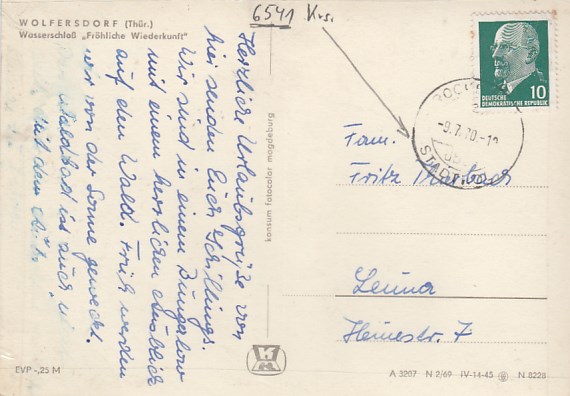 WOLFERSDORF (Thür.)
Wasserschloß „Fröhliche Wiederkunft"
6541 Krs.
Herzliche Urlaubsgrüße von
hier senden Euch Schillings.
Wir sind in einem Bungalow
mit einem herrlichen Ausblick
auf den Wald. Früh werden
wir von der Sonne geweckt.
Waldbad ist auch
mit dem
konsum fotocolor magdeburg
10
DEUTSCHE
DEMOKRATISCHE REPUBLIK
-9.7.70.-10
STADTRODA
Fam.
Fritz
Leuna
Heinestr. 7
EVP -,25 M
A 3207 N 2/69 IV-14-45 N 8228